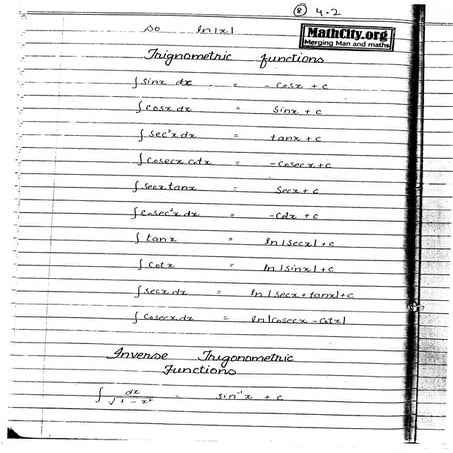 ⑧ 4.2
MathCity.org
Merging Man and maths
So ln|x|
Trignometric functions
∫ sinx dx = -Cosx + c
∫ cosx dx = Sinx + c
∫ sec²x dx = tanx + c
∫ Cosecx Cotx = -Cosecx + c
∫ Secx tanx = Secx + c
∫ Cosec²x dx = -Cotx + c
∫ tanx = ln|Secx| + c
∫ Cotx = ln|Sinx| + c
∫ Secx dx = ln|Secx + tanx| + c
∫ Cosecx dx = ln|Cosecx - Cotx|
Inverse Trigonometric
Functions
∫ dx/√1 - x² = sin⁻¹x + c